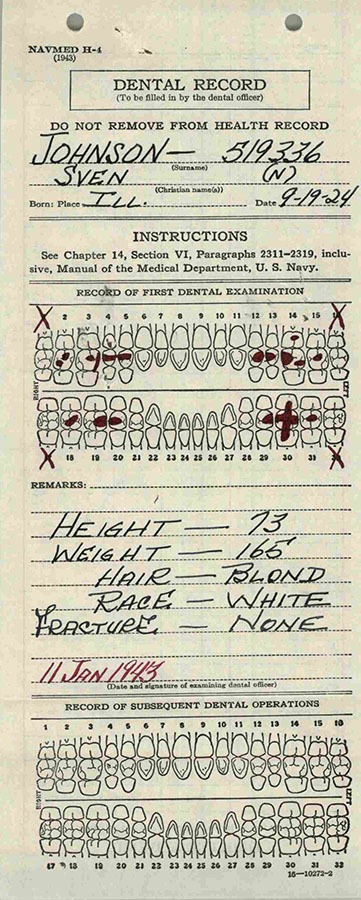 NAVMED H-4
(1943)
DENTAL RECORD
(To be filled in by the dental officer)
DO NOT REMOVE FROM HEALTH RECORD
JOHNSON — 519336
(Surname)
SVEN (N)
(Christian name(s))
Born: Place ILL. Date 9-19-24
INSTRUCTIONS
See Chapter 14, Section VI, Paragraphs 2311–2319, inclu-
sive, Manual of the Medical Department, U. S. Navy.
RECORD OF FIRST DENTAL EXAMINATION
2 3 4 5 6 7 8 9 10 11 12 13 14 15
RIGHT LEFT
18 19 20 21 22 23 24 25 26 27 28 29 30 31
REMARKS:
HEIGHT — 73
WEIGHT — 165
HAIR — BLOND
RACE — WHITE
FRACTURE — NONE
11 JAN 1943
(Date and signature of examining dental officer)
RECORD OF SUBSEQUENT DENTAL OPERATIONS
1 2 3 4 5 6 7 8 9 10 11 12 13 14 15 16
RIGHT LEFT
17 18 19 20 21 22 23 24 25 26 27 28 29 30 31 32
16—10272-2